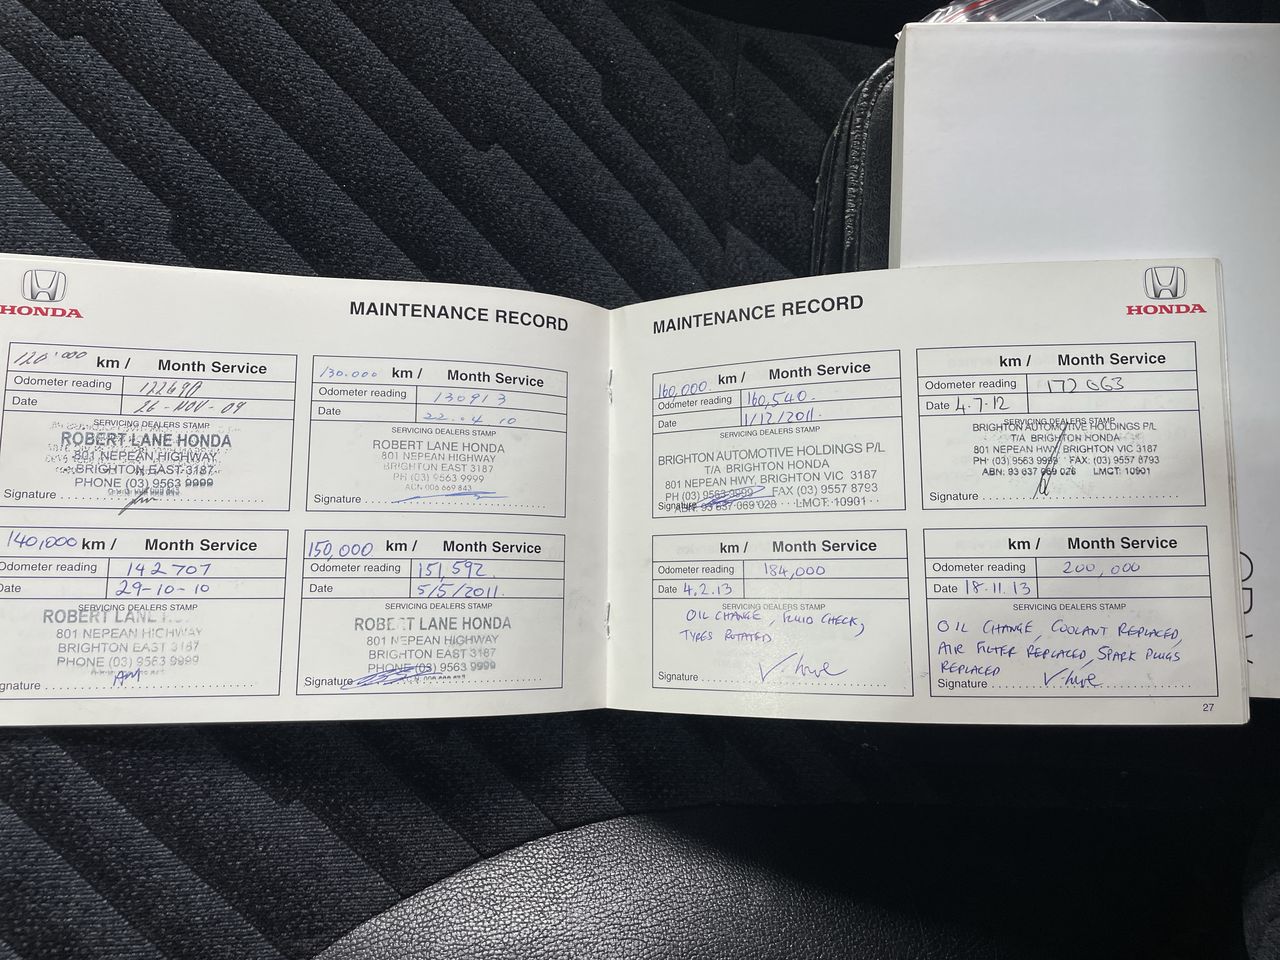 HONDA
MAINTENANCE RECORD
120'000 km / Month Service
Odometer reading
Date 26-NOV-09
SERVICING DEALERS STAMP
ROBERT LANE HONDA
801 NEPEAN HIGHWAY,
BRIGHTON EAST 3187
PHONE (03) 9563 9999
Signature
130.000 km / Month Service
Odometer reading 130913
Date 22.04 10
SERVICING DEALERS STAMP
ROBERT LANE HONDA
801 NEPEAN HIGHWAY
BRIGHTON EAST 3187
PH (03) 9563 9999
ACN 006 669 843
Signature
140,000 km / Month Service
Odometer reading 142707
Date 29-10-10
SERVICING DEALERS STAMP
ROBERT LANE
801 NEPEAN HIGHWAY
BRIGHTON EAST 3187
PHONE (03) 9563 9999
Signature
150,000 km / Month Service
Odometer reading 151,592
Date 5/5/2011.
SERVICING DEALERS STAMP
ROBERT LANE HONDA
801 NEPEAN HIGHWAY
BRIGHTON EAST 3187
PHONE (03) 9563 9999
Signature
MAINTENANCE RECORD
HONDA
160,000 km / Month Service
Odometer reading 160,540.
Date 1/12/2011.
SERVICING DEALERS STAMP
BRIGHTON AUTOMOTIVE HOLDINGS P/L
T/A BRIGHTON HONDA
801 NEPEAN HWY, BRIGHTON VIC 3187
PH (03) 9563 9999 FAX (03) 9557 8793
Signature
ABN: 93 637 069 026 LMCT: 10901
km / Month Service
Odometer reading 172 063
Date 4.7.12
SERVICING DEALERS STAMP
BRIGHTON AUTOMOTIVE HOLDINGS P/L
T/A BRIGHTON HONDA
801 NEPEAN HWY, BRIGHTON VIC 3187
PH (03) 9563 9999 FAX: (03) 9557 8793
ABN: 93 637 069 026 LMCT: 10901
Signature
km / Month Service
Odometer reading 184,000
Date 4.2.13
SERVICING DEALERS STAMP
OIL CHANGE, FLUID CHECK,
TYRES ROTATED
Signature
km / Month Service
Odometer reading 200,000
Date 18.11.13
SERVICING DEALERS STAMP
OIL CHANGE, COOLANT REPLACED,
AIR FILTER REPLACED, SPARK PLUGS
REPLACED
Signature
27